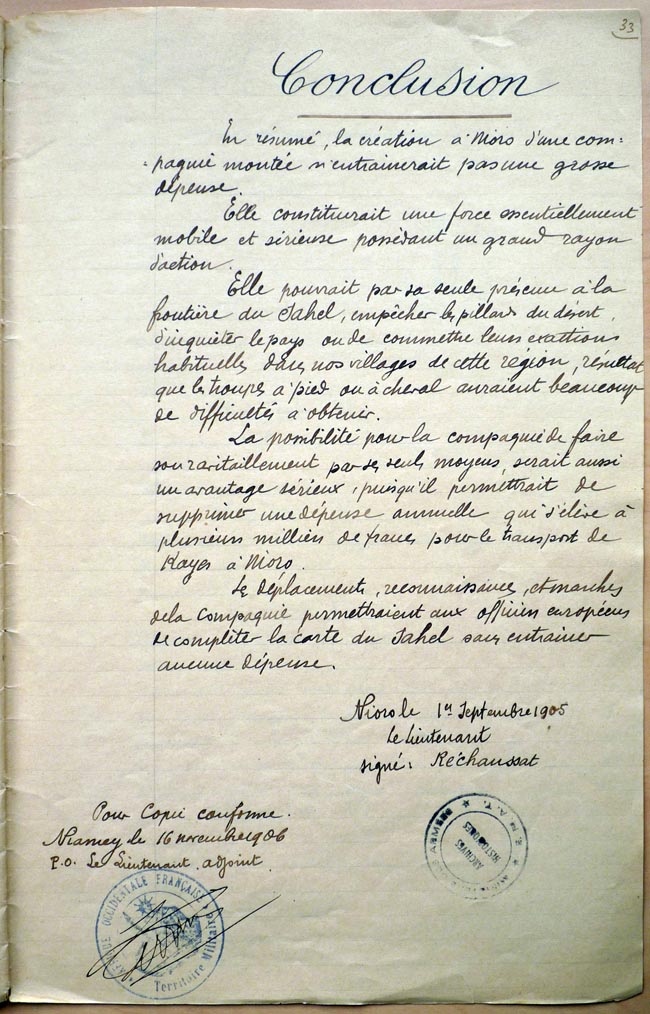 33
Conclusion
En résumé, la création à Nioro d'une com-
-pagnie montée n'entrainerait pas une grosse
dépense.
Elle constituerait une force essentiellement
mobile et sérieuse possédant un grand rayon
d'action.
Elle pourrait par sa seule présence à la
frontière du Sahel, empêcher les pillards du désert
d'inquiéter le pays ou de commettre leurs exactions
habituelles dans nos villages de cette région, résultat
que les troupes à pied ou à cheval auraient beaucoup
de difficultés à obtenir.
La possibilité pour la compagnie de faire
son ravitaillement par ses seuls moyens, serait aussi
un avantage sérieux, puisqu'il permettrait de
supprimer une dépense annuelle qui s'élève à
plusieurs milliers de francs pour le transport de
Kayes à Nioro.
Les déplacements, reconnaissances, et marches
de la Compagnie permettraient aux officiers européens
de compléter la carte du Sahel sans entrainer
aucune dépense.
Nioro le 1er Septembre 1905
Le Lieutenant
signé: Réchaussat
Pour Copie conforme.
Niamey le 16 novembre 1906
P.O. Le Lieutenant adjoint
AFRIQUE OCCIDENTALE FRANÇAISE
Territoire Militaire
ARCHIVES
HISTORIQUES
E.M.A.T.